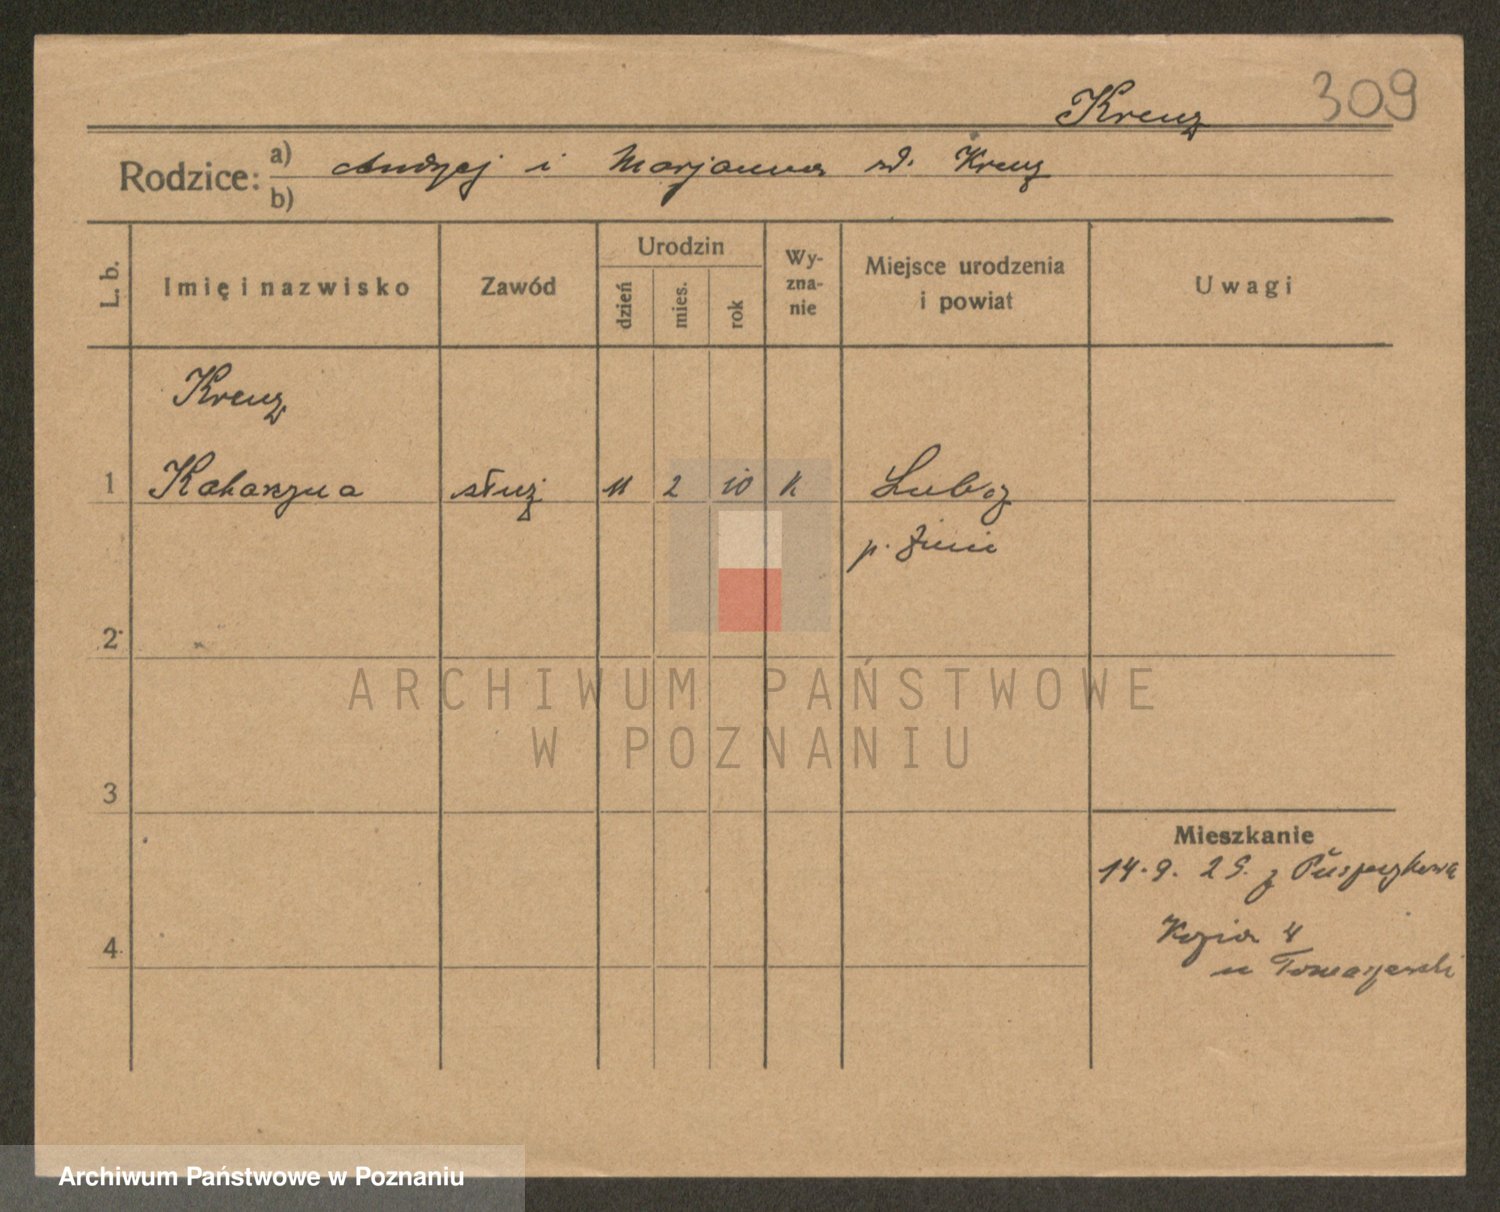 Kreuz 309
Rodzice: a) Andrzej i Marjanna zd. Kreuz
b)
L. b. Imię i nazwisko Zawód Urodzin dzień mies. rok Wy-zna-nie Miejsce urodzenia i powiat Uwagi
Kreuz
1 Katarzyna służ 11 2 10 k Lubcz
p. Żnin
2
3
4
Mieszkanie
14.9. 29. z
Kozia 4
u Tomaszewski
ARCHIWUM PAŃSTWOWE
W POZNANIU
Archiwum Państwowe w Poznaniu